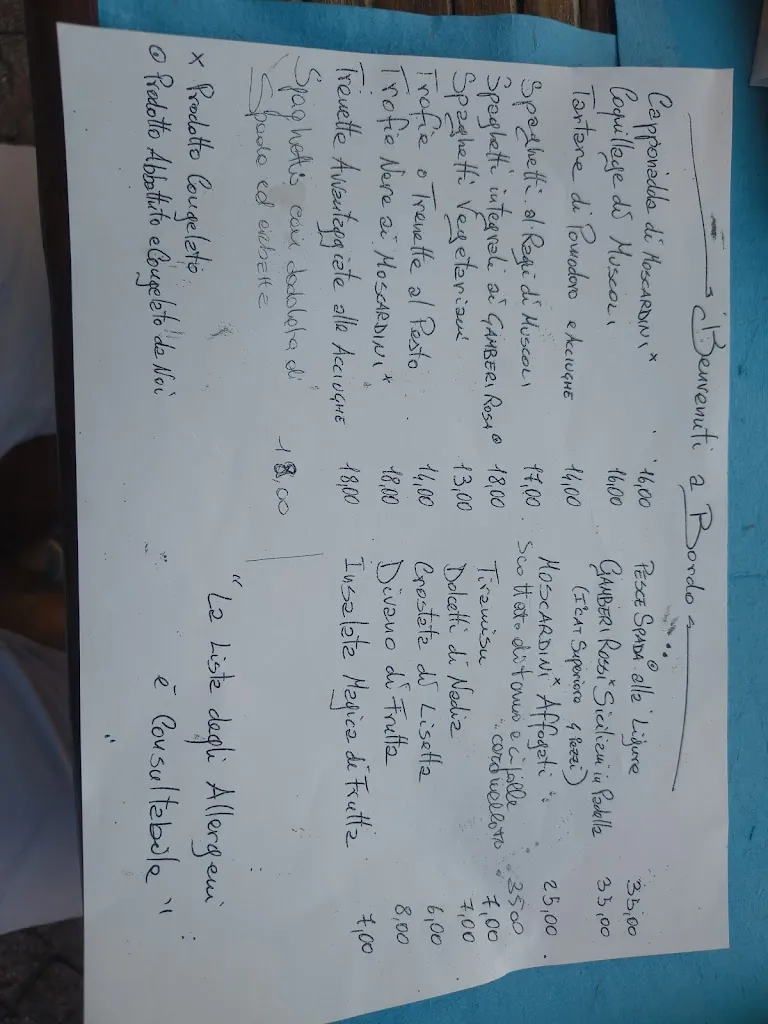 Benvenuti a Bordo
Capponadda di MOSCARDINI x 16,00
Coquillage di MUSCOLI 16,00
Tartare di Pomodoro e ACCIUGHE 14,00
Spaghetti al Ragù di MUSCOLI 17,00
Spaghetti integrali ai GAMBERI ROSA 18,00
Spaghetti Vegetariani 13,00
Trofie o Trenette al Pesto 14,00
Trofie Nere ai MOSCARDINI x 18,00
Trenette Avvantaggiate alle ACCIUGHE 18,00
Spaghetti con dadolata di
Spada ed erbette 18,00
x Prodotto Congelato
⊙ Prodotto Abbattuto e Congelato da Noi
PESCE SPADA alla Ligure 33,00
GAMBERI ROSSI x Siciliani in Padella 33,00
(1ª CAT Superiore 4 Pezzi)
MOSCARDINI x Affogati 25,00
Scottato di tonno e cipolle
caramellate 35,00
Tiramisu 7,00
Dolcetti di Nadia 7,00
Crostata di Lisetta 6,00
Divano di Frutta 8,00
Insalata Magica di Frutta 7,00
"La Lista degli Allergeni
è Consultabile"